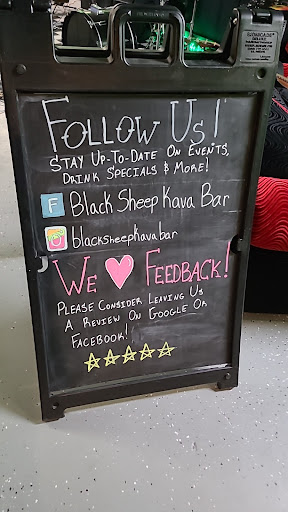 Follow Us!
Stay Up-To-Date On Events,
Drink Specials & More!
F Black Sheep Kava Bar
blacksheepkavabar
We ♥ Feedback!
Please Consider Leaving Us
A Review On Google Or
Facebook!